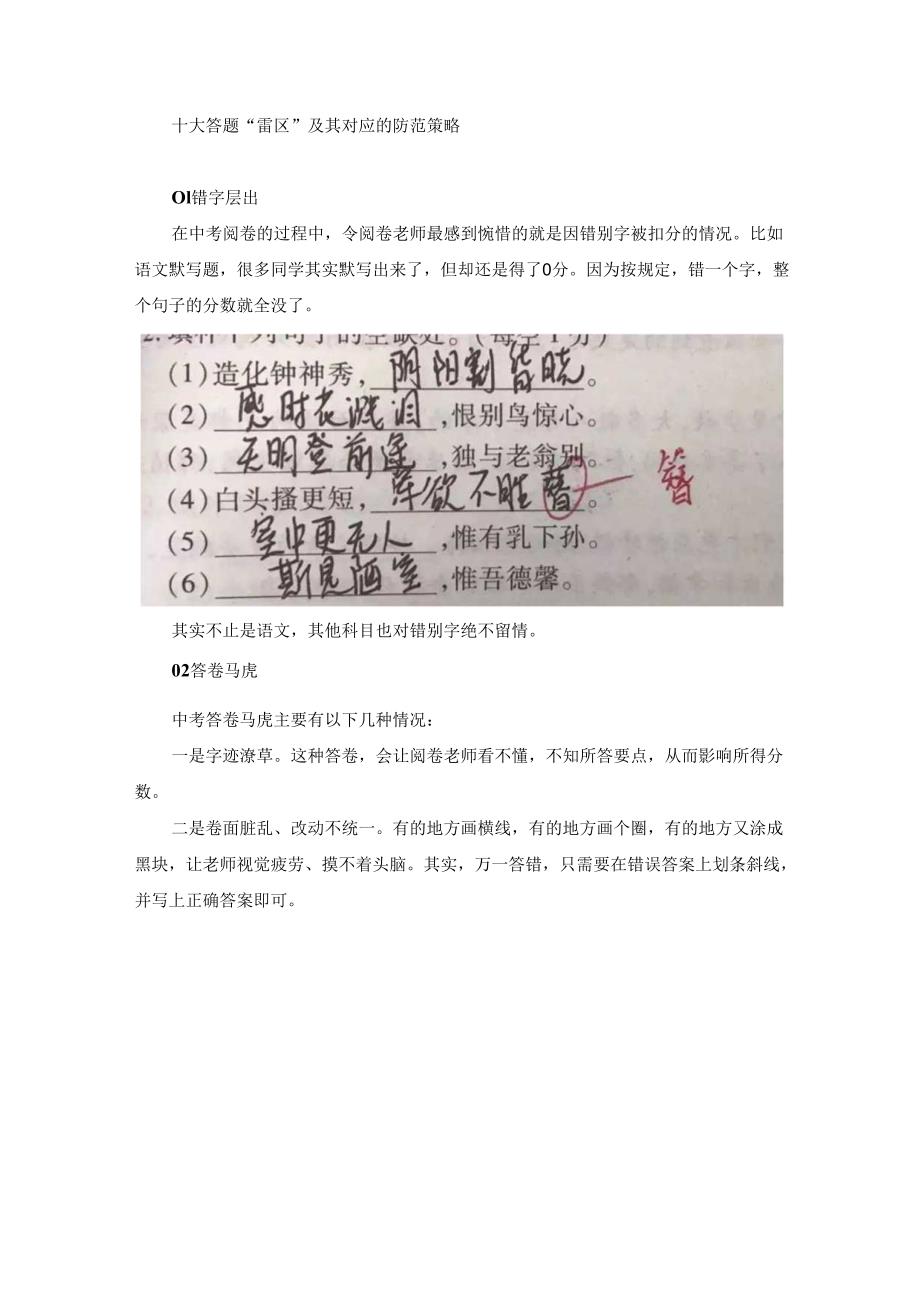 十大答题“雷区”及其对应的防范策略
Ol错字层出
在中考阅卷的过程中，令阅卷老师最感到惋惜的就是因错别字被扣分的情况。比如
语文默写题，很多同学其实默写出来了，但却还是得了0分。因为按规定，错一个字，整
个句子的分数就全没了。
2.填补下列句子的空缺处。（每空1分）
(1)造化钟神秀，阴阳割昏晓。
(2)感时花溅泪，恨别鸟惊心。
(3)天明登前途，独与老翁别。
(4)白头搔更短，浑欲不胜 簪
(5)室中更无人，惟有乳下孙。
(6)斯是陋室，惟吾德馨。
其实不止是语文，其他科目也对错别字绝不留情。
02答卷马虎
中考答卷马虎主要有以下几种情况：
一是字迹潦草。这种答卷，会让阅卷老师看不懂，不知所答要点，从而影响所得分
数。
二是卷面脏乱、改动不统一。有的地方画横线，有的地方画个圈，有的地方又涂成
黑块，让老师视觉疲劳、摸不着头脑。其实，万一答错，只需要在错误答案上划条斜线，
并写上正确答案即可。